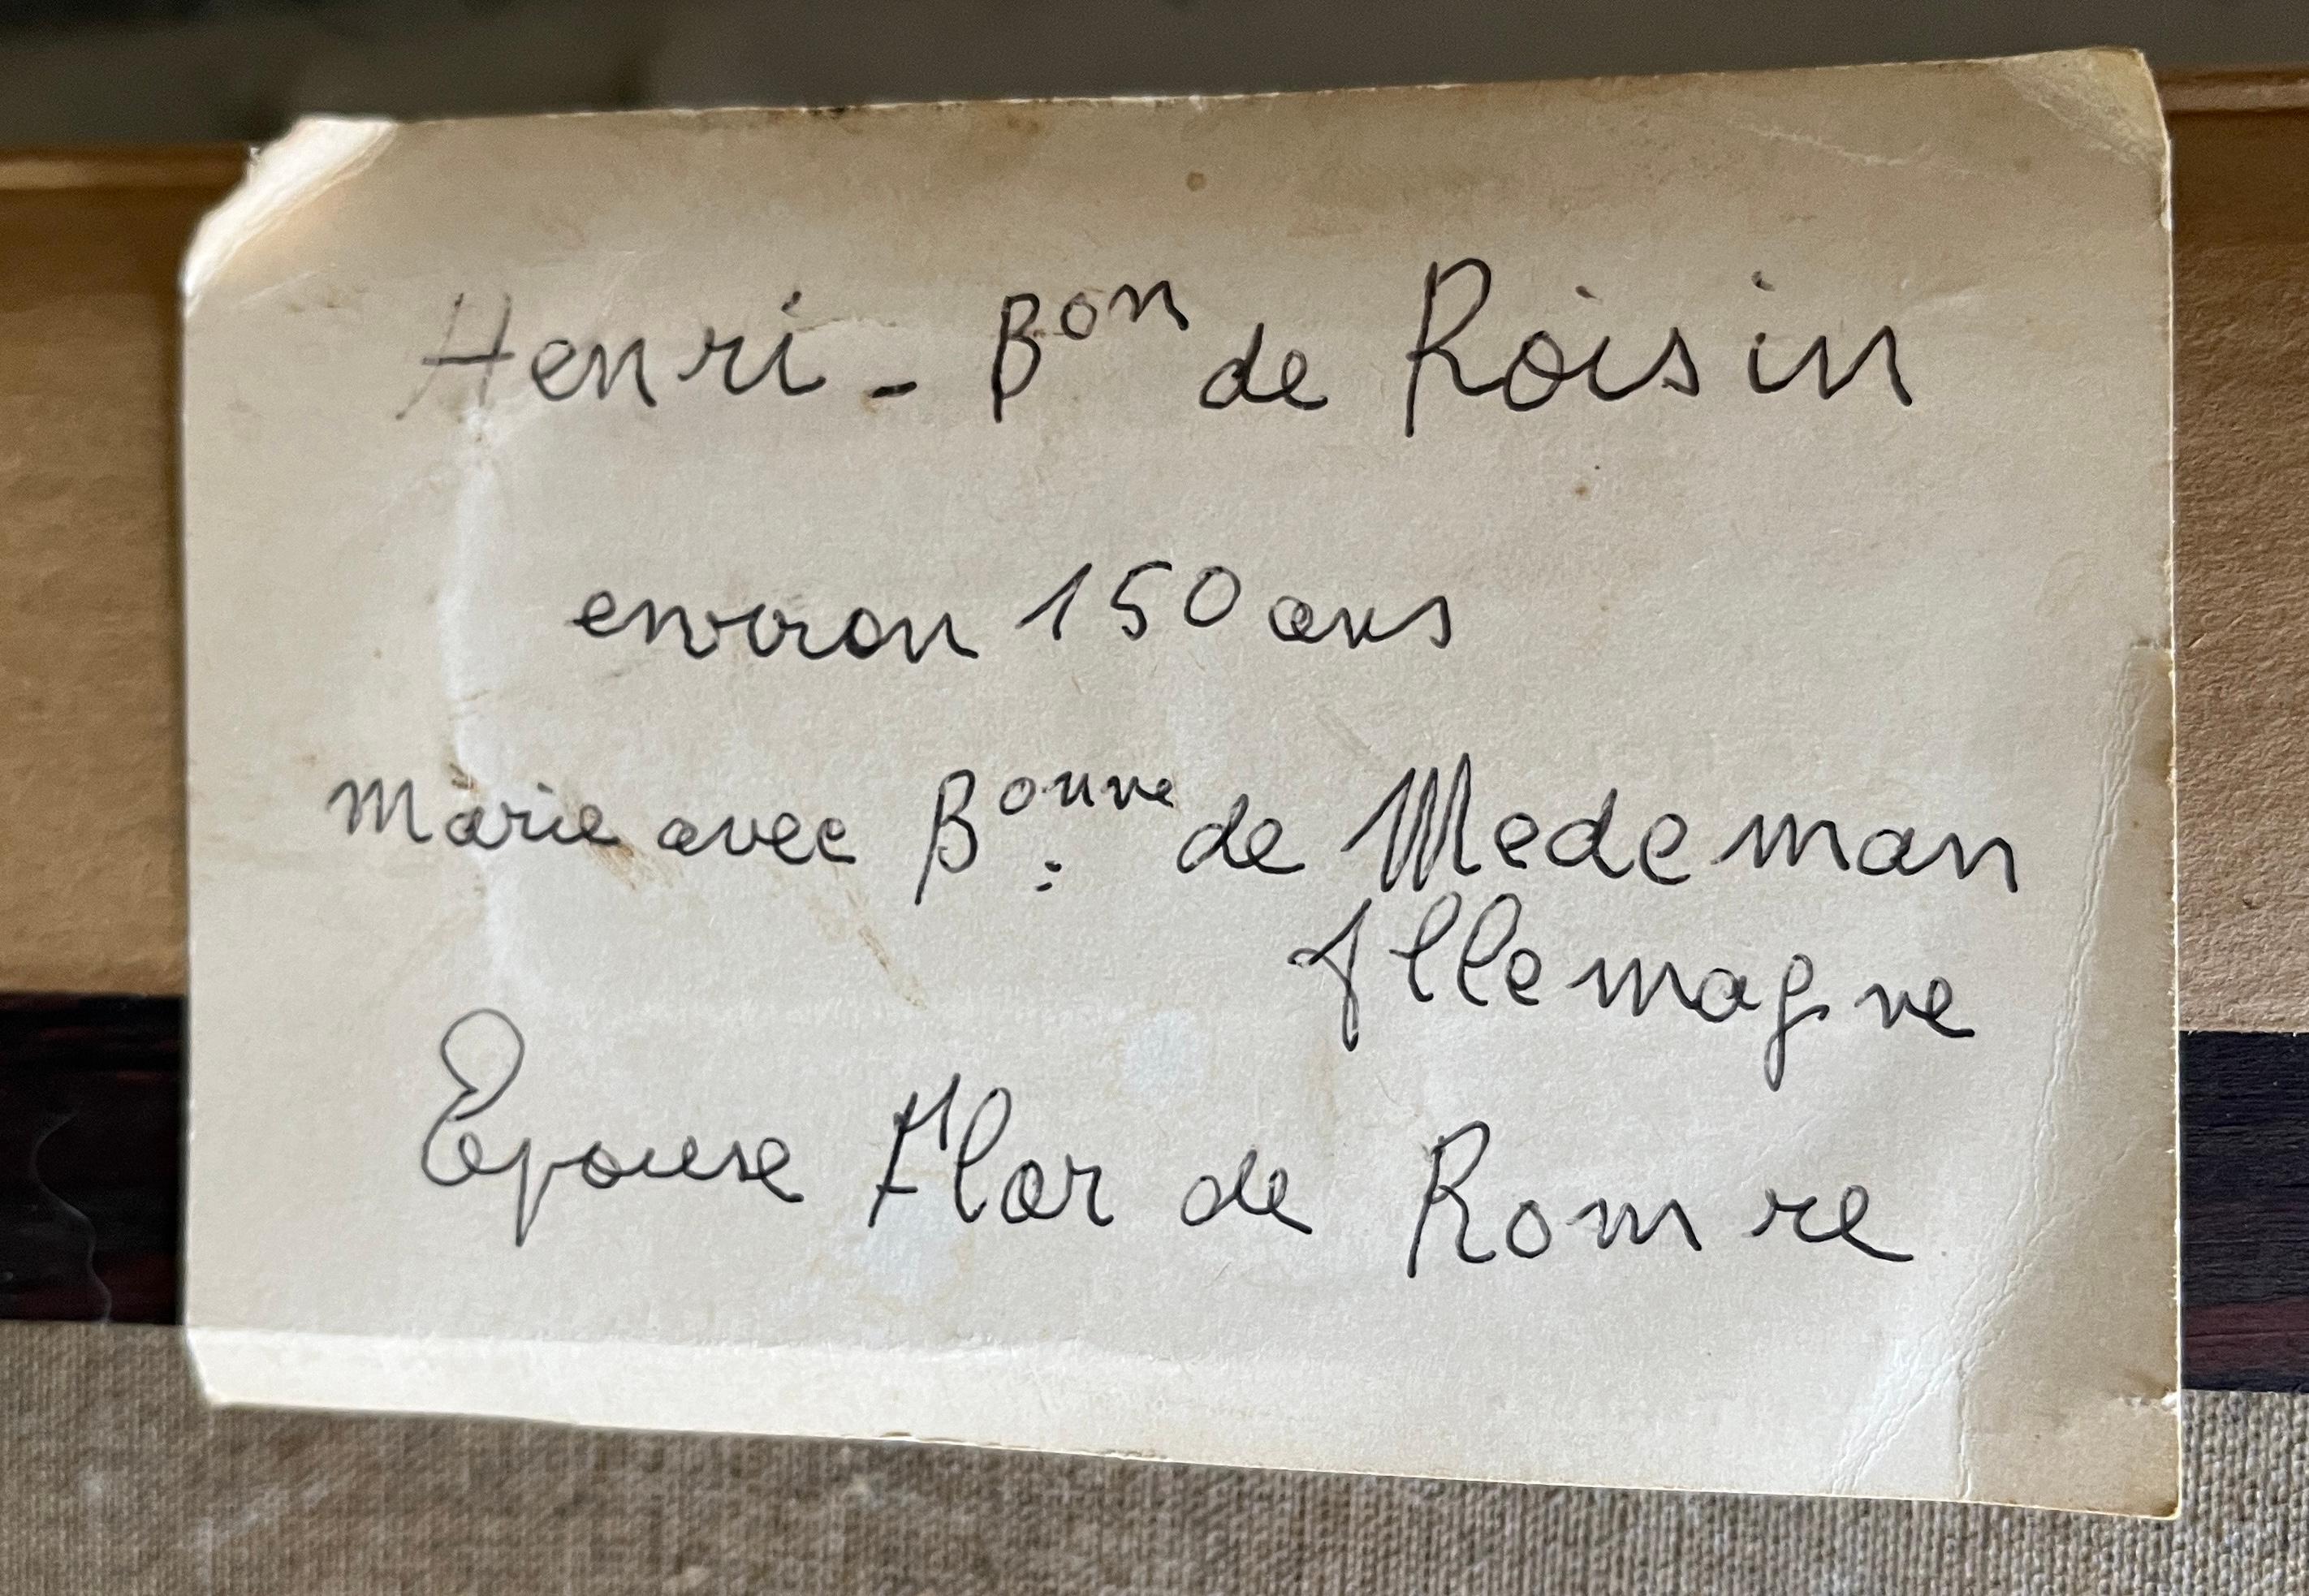 Henri - Bon de Roisin
environ 150 ans
Marie avec Bonne. de Medeman
Allemagne
Epouse Flor de Romre